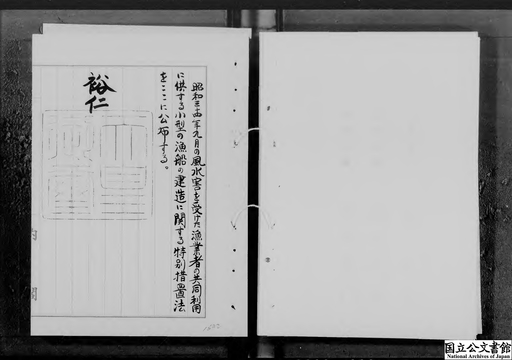 昭和三十四年九月の風水害を受けた漁業者の共同利用
に供する小型の漁船の建造に関する特別措置法
をここに公布する。
裕仁
国立公文書館
National Archives of Japan